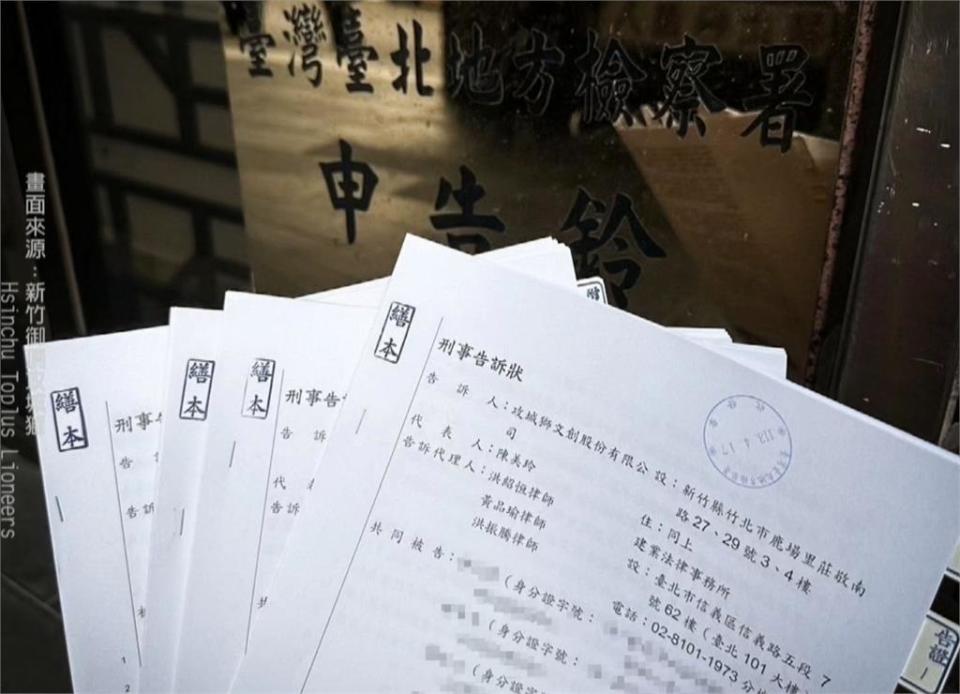 臺灣臺北地方檢察署
申告鈴
畫面來源:新竹御
Hsinchu Toplus Lioneers
繕本
刑事告
告
告訴
1
繕本
2
繕本
刑事告
告訴
代
告訴
繕本
刑事告訴狀
告訴人:攻城獅文創股份有限公司
設:新竹縣竹北市鹿場里莊敬南路27、29號3、4樓
代表人:陳美玲
住:同上
告訴代理人:洪紹恆律師
黃品瑜律師
洪振騰律師
建業法律事務所
設:臺北市信義區信義路五段7號62樓(臺北101大樓
電話:02-8101-1973分
共同被告:
(身分證字號:
(身分證字號:
(身分證字號:
113.4.17
告證1